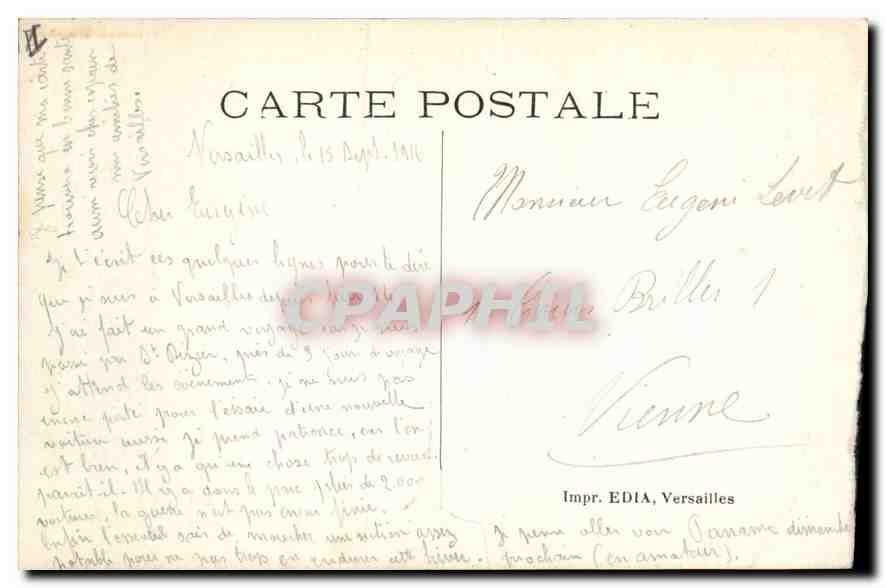 CARTE POSTALE
Versailles, le 15 Sept. 1916
Cher Eugène
Je t'écrit ces quelques lignes pour te dire
que je suis à Versailles depuis
j'ai fait un grand voyage car je suis
passé par St Dizier, près de 3 jour d
j'attend les évènements, je ne suis pas
encore parti pour l'essaie d'une nouvelle
voiture aussi je prend patience, car l'on
est bien, il y a qu'une chose trop de revues
parait-il. Il y a dans le parc plus de 2.000
voitures, la guerre n'est pas encore finie.
Enfin l'essentiel sais de
potable pour ne pas trop en endurer cette hiver.
Je pense aller voir Paname dimanche
prochain (en amateur).
Je pense que ma carte
trouvera en bonne santé
mes amitiés de
Versailles
Monsieur Eugène Levet
Brillier 1
Vienne
Impr. EDIA, Versailles
CPAPHIL